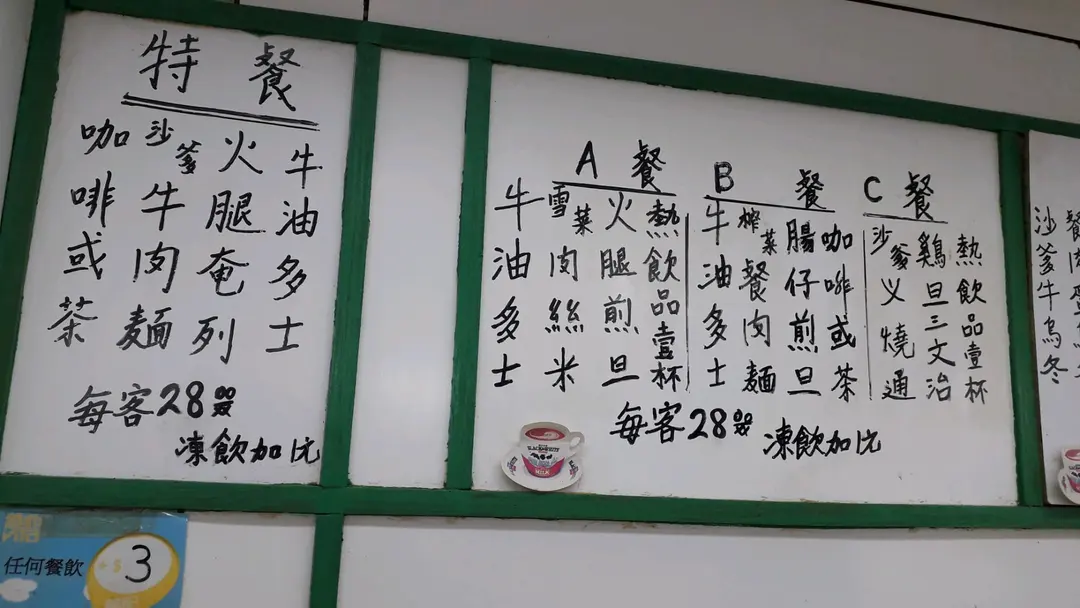 特餐
牛油多士
火腿奄列
沙爹牛肉麵
咖啡或茶
每客28
凍飲加1元
A餐
熱飲品壹杯
火腿煎旦
雪菜肉絲米
牛油多士
B餐
咖啡或茶
腸仔煎旦
榨菜餐肉麵
牛油多士
C餐
熱飲品壹杯
鷄旦三文治
沙爹乂燒通
每客28
凍飲加1元
餐肉
沙爹牛烏冬
任何餐飲
+$3